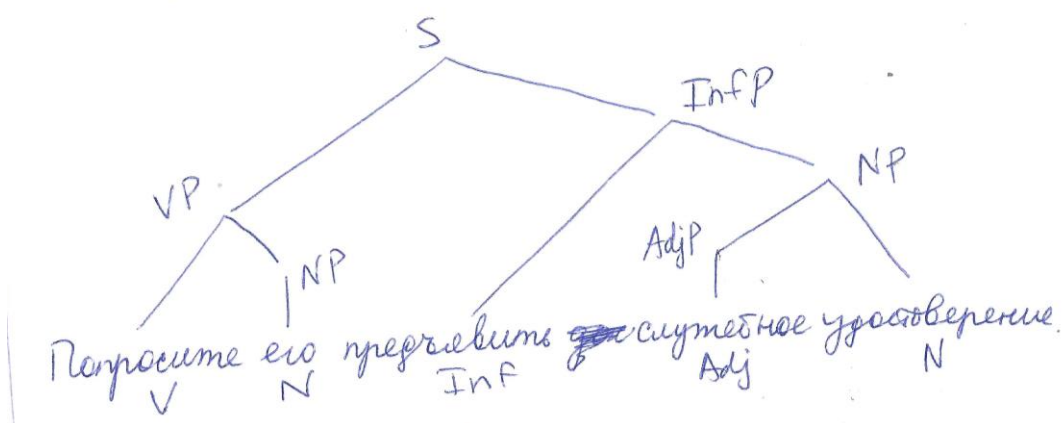 S
InfP
VP
NP
AdjP
NP
Попросите его предъявить служебное удостоверение
V N Inf Adj N